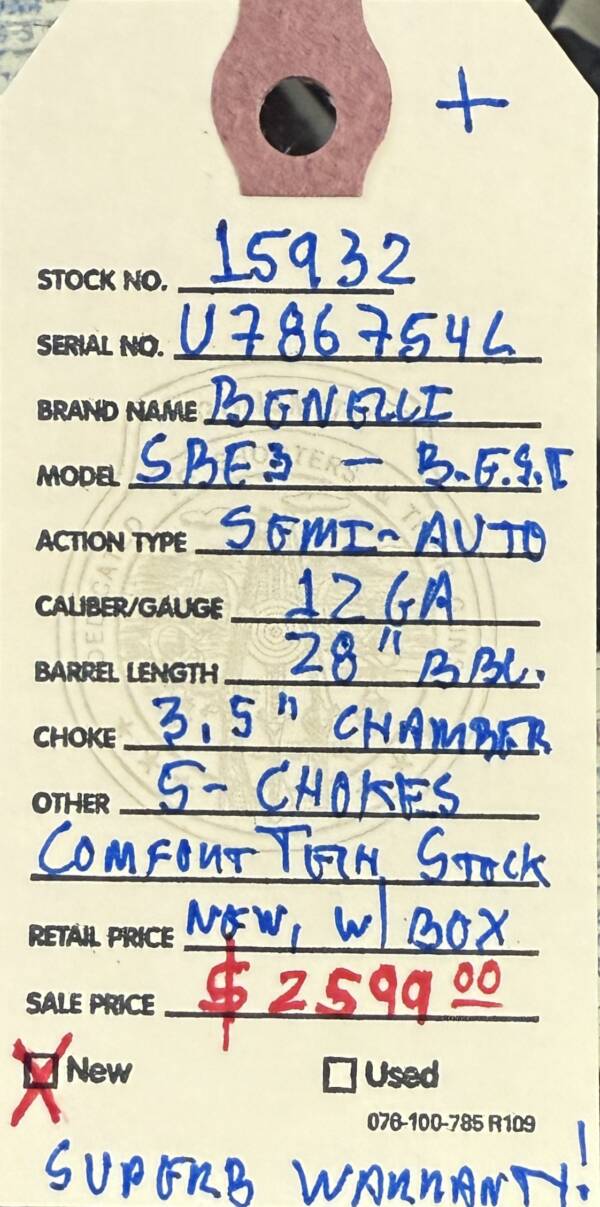 +
STOCK NO. 15932
SERIAL NO. U786754L
BRAND NAME BENELLI
MODEL SBE3 - B.E.S.T
ACTION TYPE SEMI-AUTO
CALIBER/GAUGE 12 GA
BARREL LENGTH 28" BBL.
CHOKE 3.5" CHAMBER
OTHER 5- CHOKES
COMFORT TECH STOCK
RETAIL PRICE NEW, W/ BOX
SALE PRICE $2599.00
New Used
076-100-785 R109
SUPERB WARRANTY!